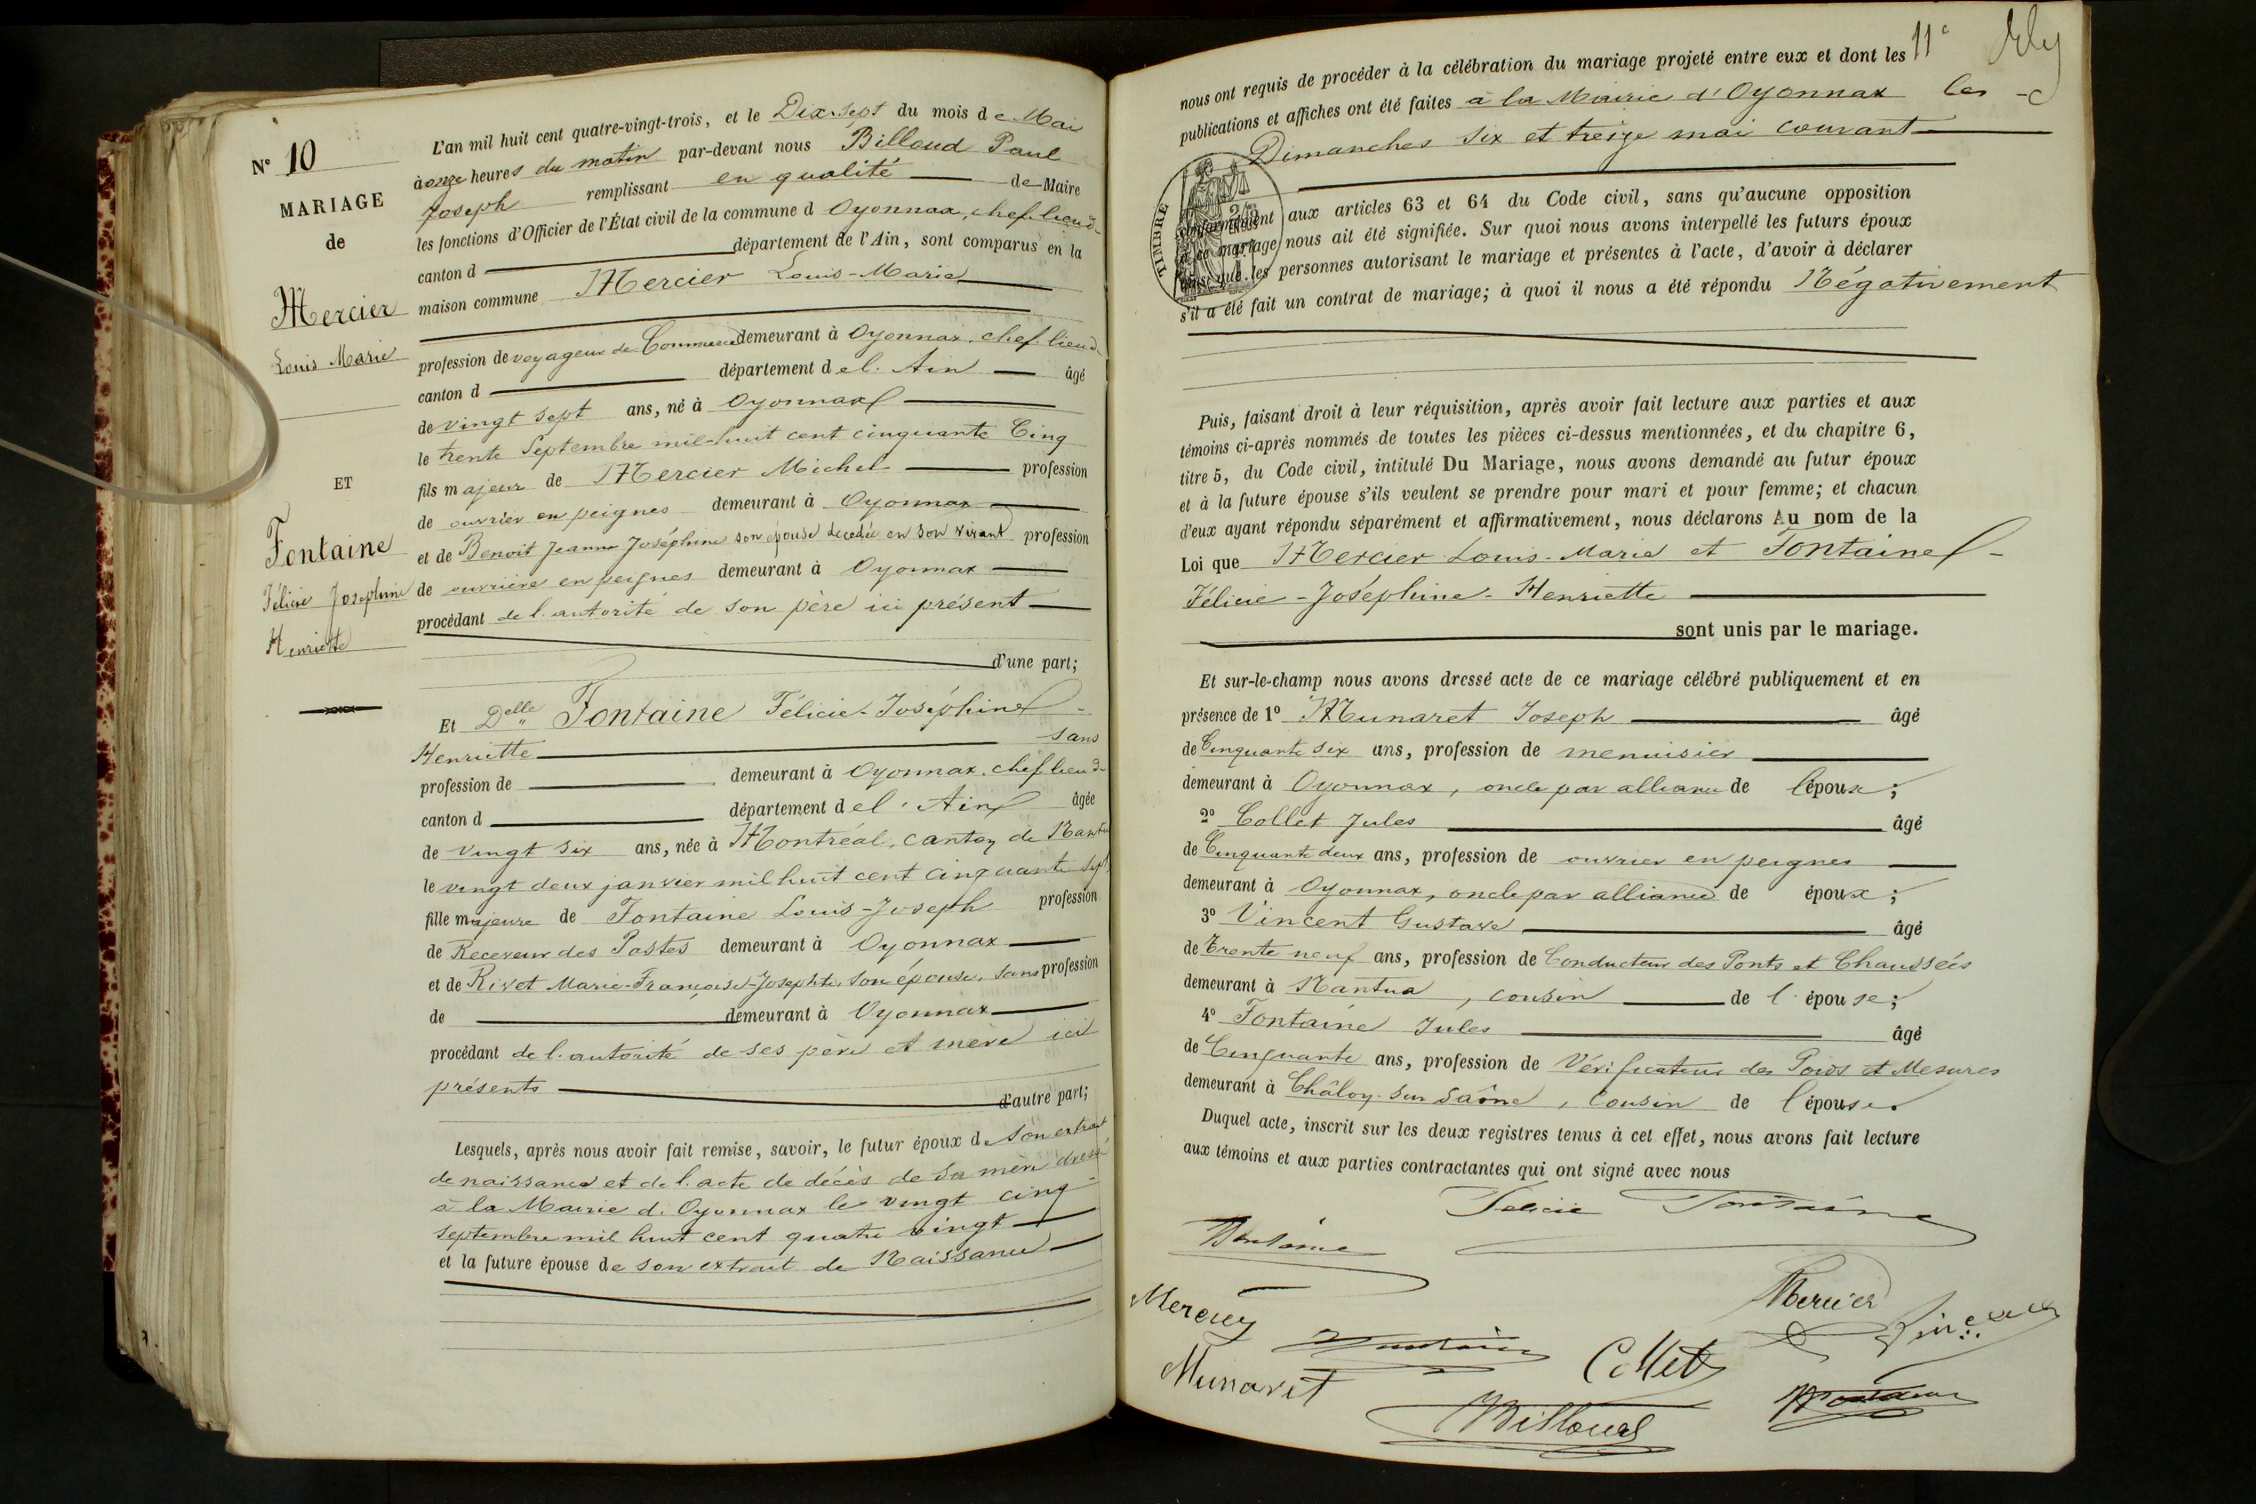 N° 10
MARIAGE
de
Mercier
Louis Marie
ET
Fontaine
Félicie Joséphine
Henriette
L'an mil huit cent quatre-vingt-trois, et le Dix-sept du mois de Mai
à onze heures du matin par-devant nous Billoud Paul
Joseph remplissant en qualité de Maire
les fonctions d'Officier de l'État civil de la commune d Oyonnax, chef lieu d
canton d département de l'Ain, sont comparus en la
maison commune Mercier Louis-Marie
profession de voyageur de Commerce demeurant à Oyonnax, chef lieu d
canton d département de l'Ain âgé
de vingt sept ans, né à Oyonnax
le trente Septembre mil-huit cent cinquante Cinq
fils majeur de Mercier Michel profession
de ouvrier en peignes demeurant à Oyonnax
et de Benoit Jeanne Joséphine son épouse décédée en son vivant profession
de ouvrière en peignes demeurant à Oyonnax
procédant de l'autorité de son père ici présent
d'une part;
Et Delle Fontaine Félicie-Joséphine-
Henriette sans
profession de demeurant à Oyonnax, chef lieu d
canton d département de l'Ain âgée
de vingt six ans, née à Montréal, canton de Nantua
le vingt deux janvier mil huit cent cinquante sept
fille majeure de Fontaine Louis-Joseph profession
de Receveur des Postes demeurant à Oyonnax
et de Rivet Marie-Françoise-Josephte, son épouse, sans profession
de demeurant à Oyonnax
procédant de l'autorité de ses père et mère ici
présents
d'autre part;
Lesquels, après nous avoir fait remise, savoir, le futur époux de son extrait
de naissance et de l'acte de décès de sa mère dressé
à la Mairie d'Oyonnax le vingt cinq
septembre mil huit cent quatre vingt
et la future épouse de son extrait de Naissance
11e
nous ont requis de procéder à la célébration du mariage projeté entre eux et dont les
publications et affiches ont été faites à la Mairie d'Oyonnax les
Dimanches six et treize mai courant
TIMBRE
conformément aux articles 63 et 64 du Code civil, sans qu'aucune opposition
à ce mariage nous ait été signifiée. Sur quoi nous avons interpellé les futurs époux
ainsi que les personnes autorisant le mariage et présentes à l'acte, d'avoir à déclarer
s'il a été fait un contrat de mariage; à quoi il nous a été répondu Négativement
Puis, faisant droit à leur réquisition, après avoir fait lecture aux parties et aux
témoins ci-après nommés de toutes les pièces ci-dessus mentionnées, et du chapitre 6,
titre 5, du Code civil, intitulé Du Mariage, nous avons demandé au futur époux
et à la future épouse s'ils veulent se prendre pour mari et pour femme; et chacun
d'eux ayant répondu séparément et affirmativement, nous déclarons Au nom de la
Loi que Mercier Louis-Marie et Fontaine -
Félicie-Joséphine-Henriette
sont unis par le mariage.
Et sur-le-champ nous avons dressé acte de ce mariage célébré publiquement et en
présence de 1° Munaret Joseph âgé
de Cinquante six ans, profession de menuisier
demeurant à Oyonnax, oncle par alliance de l'époux;
2° Collet Jules âgé
de Cinquante deux ans, profession de ouvrier en peignes
demeurant à Oyonnax, oncle par alliance de époux;
3° Vincent Gustave âgé
de Trente neuf ans, profession de Conducteur des Ponts et Chaussées
demeurant à Nantua, cousin de l'épouse;
4° Fontaine Jules âgé
de Cinquante ans, profession de Vérificateur des Poids et Mesures
demeurant à Châlon-sur-Saône, Cousin de l'épouse.
Duquel acte, inscrit sur les deux registres tenus à cet effet, nous avons fait lecture
aux témoins et aux parties contractantes qui ont signé avec nous
Félicie Fontaine
Fontaine
Mercier
Mercier
Vincent
Fontaine
Collet
Munaret
Billoud